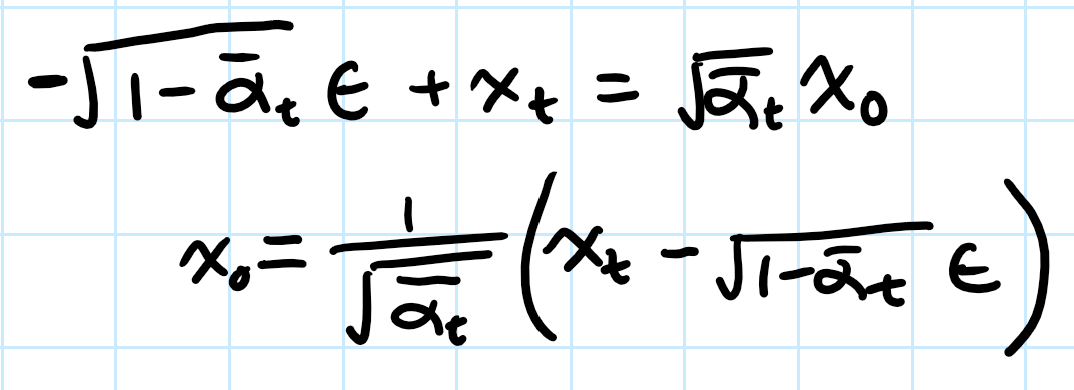 -√(1-ᾱₜ) ϵ + xₜ = √ᾱₜ x₀
x₀ = 1/√ᾱₜ (xₜ - √(1-ᾱₜ) ϵ)